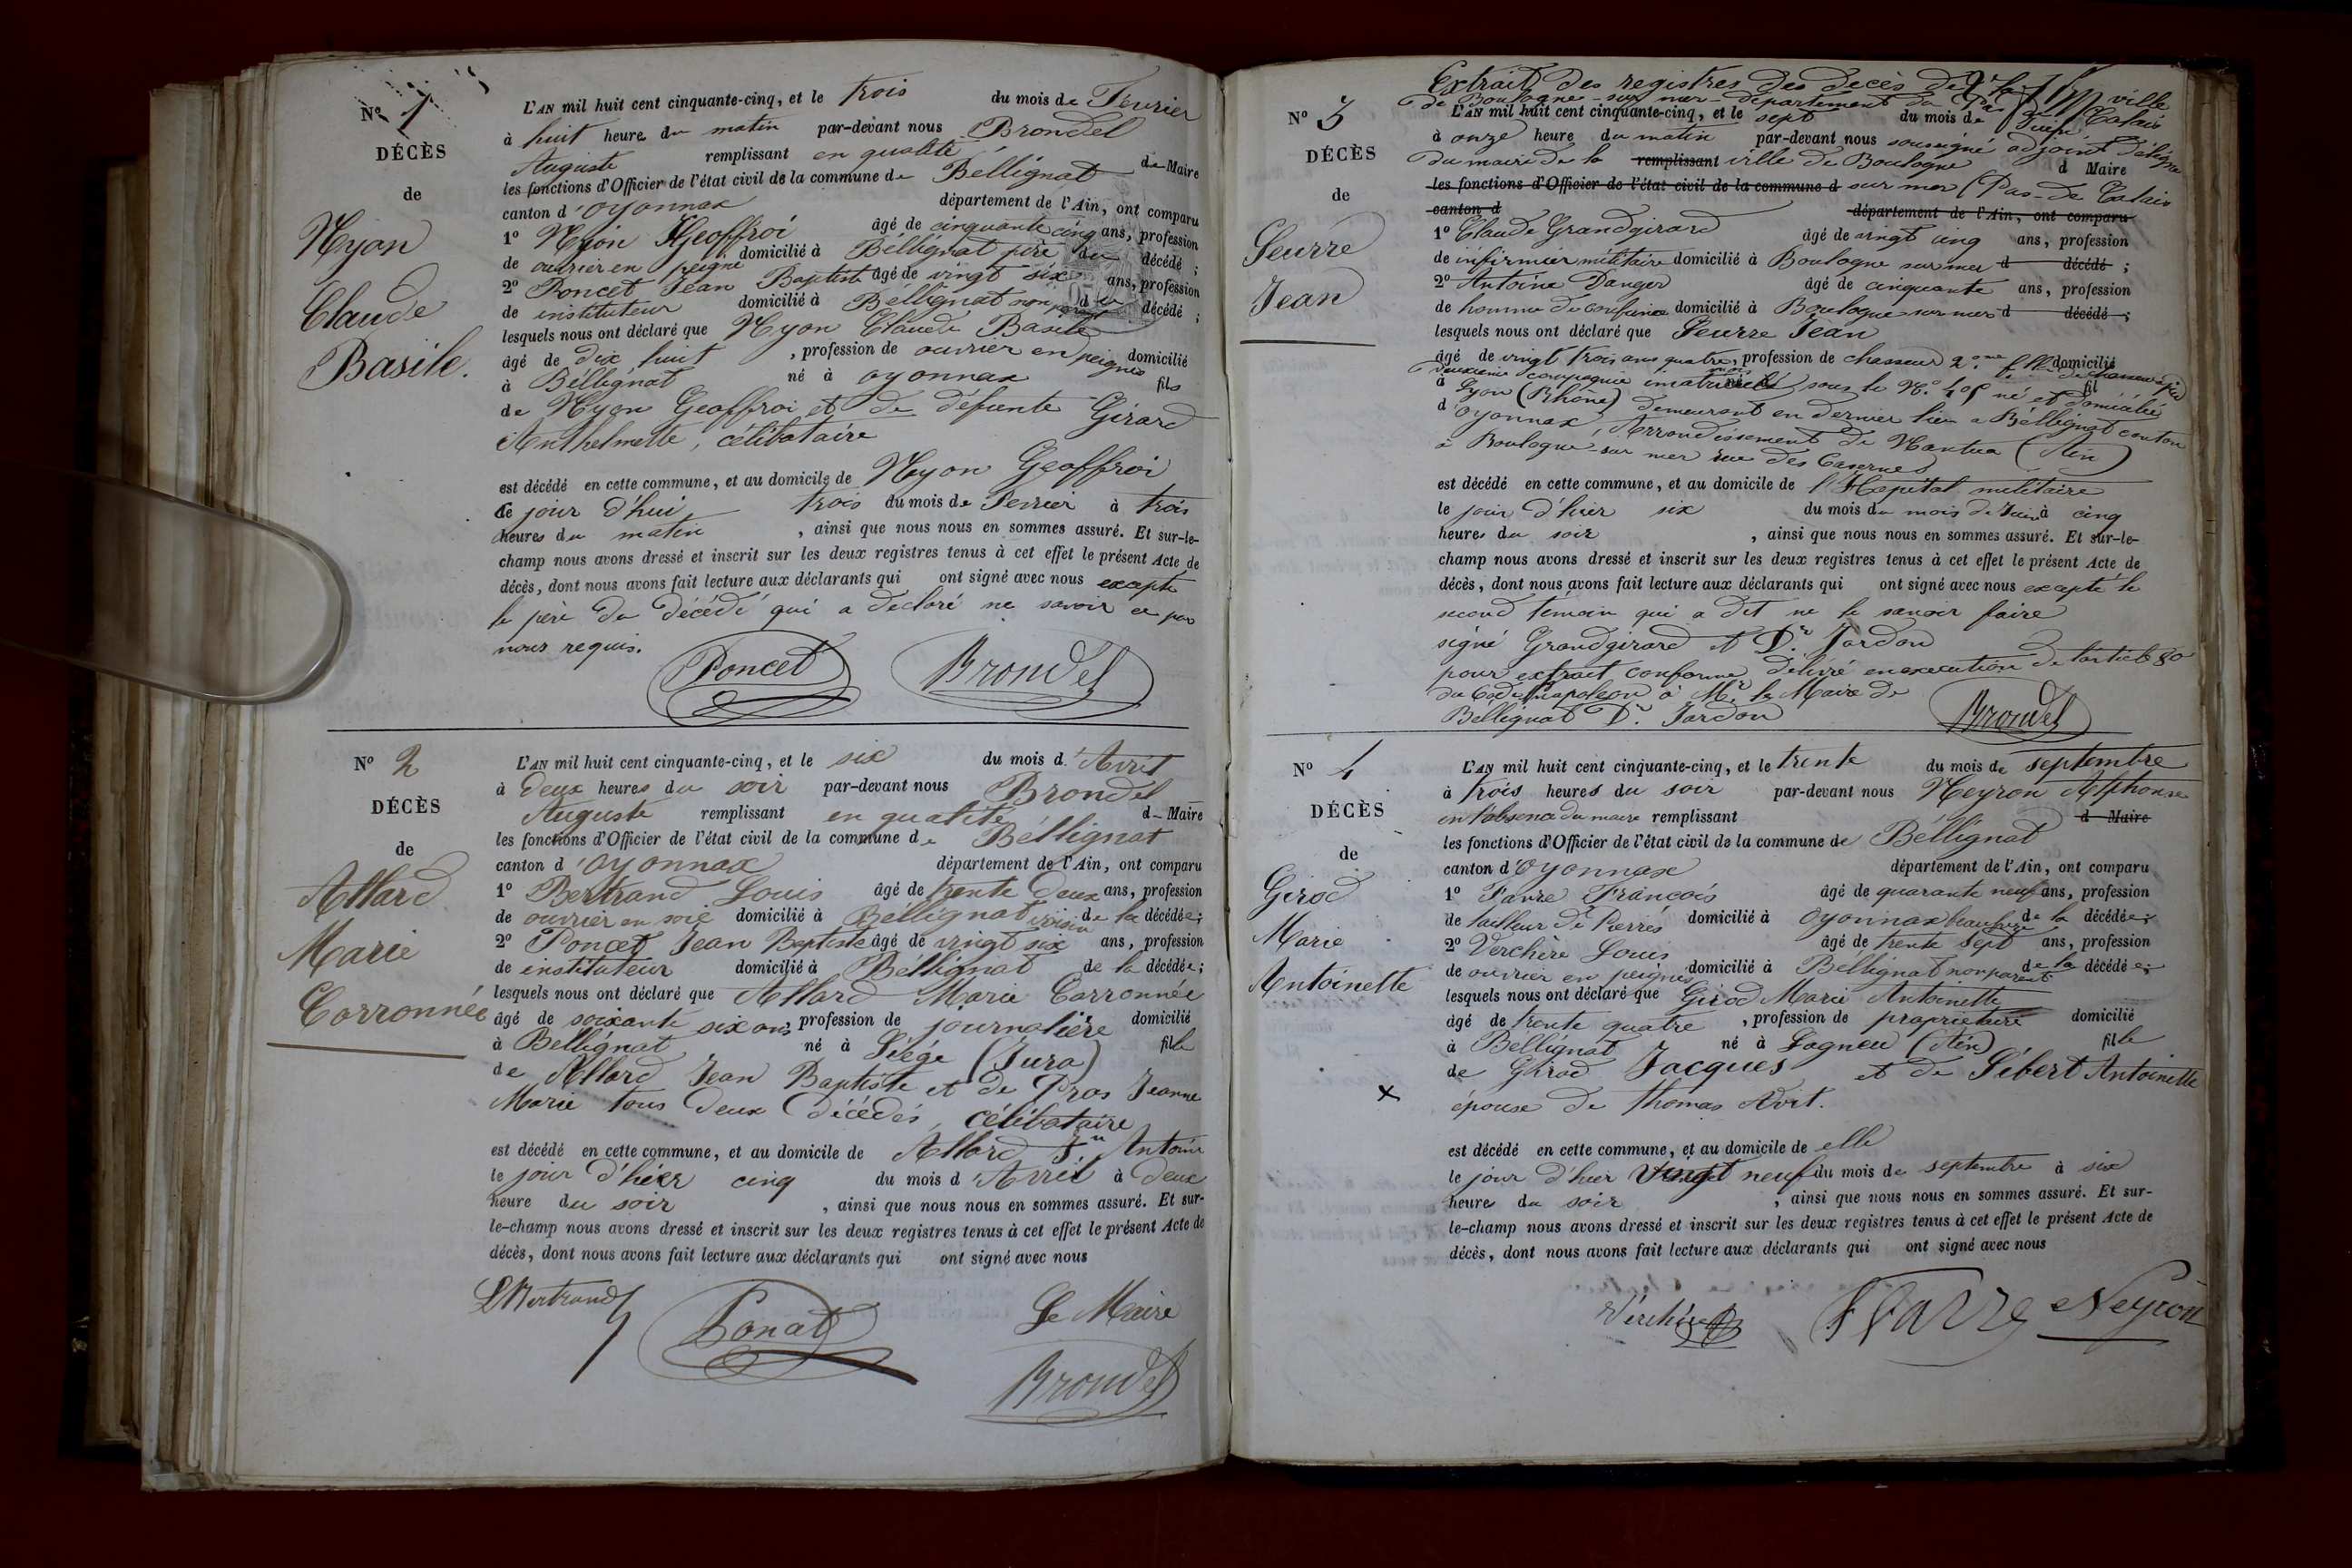 Nº 1
DÉCÈS
de
Nyon
Claude
Basile.
L'AN mil huit cent cinquante-cinq, et le trois du mois de Fevrier
à huit heure du matin par-devant nous Brondel
Auguste remplissant en qualité de Maire
les fonctions d'Officier de l'état civil de la commune de Béllignat
canton d'oyonnax département de l'Ain, ont comparu
1º Nyon Geoffroi âgé de cinquante cinq ans, profession
de ouvrier en peigne domicilié à Béllignat père du décédé ;
2º Poncet Jean Baptiste âgé de vingt six ans, profession
de instituteur domicilié à Béllignat non parent du décédé ;
lesquels nous ont déclaré que Nyon Claude Basile
âgé de dix huit , profession de ouvrier en peignes domicilié
à Béllignat né à oyonnax fils
de Nyon Geoffroi et de défunte Girard
Anthelmette, célibataire
est décédé en cette commune, et au domicile de Nyon Geoffroi
le jour d'hui trois du mois de Fevrier à trois
heures du matin , ainsi que nous nous en sommes assuré. Et sur-le-
champ nous avons dressé et inscrit sur les deux registres tenus à cet effet le présent Acte de
décès, dont nous avons fait lecture aux déclarants qui ont signé avec nous excepté
le père du décédé qui a declaré ne savoir ce par
nous requis.
Poncet Brondel
Nº 2
DÉCÈS
de
Allard
Marie
Corronnée
L'AN mil huit cent cinquante-cinq, et le six du mois d'Avril
à deux heures du soir par-devant nous Brondel
Auguste remplissant en qualité d Maire
les fonctions d'Officier de l'état civil de la commune de Béllignat
canton d'oyonnax département de l'Ain, ont comparu
1º Bertrand Louis âgé de trente deux ans, profession
de ouvrier en soie domicilié à Béllignat voisin de la décédée ;
2º Poncet Jean Baptiste âgé de vingt six ans, profession
de instituteur domicilié à Béllignat de la décédée ;
lesquels nous ont déclaré que Allard Marie Corronnée
âgé de soixante six ans, profession de journalière domicilié
à Béllignat né à Siége (Jura) fille
de Allard Jean Baptiste et de Pros Jeanne
Marie tous deux décédés, célibataire
est décédé en cette commune, et au domicile de Allard Antoine
le jour d'hier cinq du mois d'Avril à deux
heure du soir , ainsi que nous nous en sommes assuré. Et sur-
le-champ nous avons dressé et inscrit sur les deux registres tenus à cet effet le présent Acte de
décès, dont nous avons fait lecture aux déclarants qui ont signé avec nous
LBertrand Le Maire
Brondel
Nº 3
DÉCÈS
de
Seurre
Jean
Extrait des registres des decès de la ville
de Boulogne-sur mer- département du Pas de Calais
L'AN mil huit cent cinquante-cinq, et le sept du mois de Juin
à onze heure du matin par-devant nous soussigné adjoint délégué
du maire de la remplissant ville de Boulogne d Maire
les fonctions d'Officier de l'état civil de la commune d sur mer (Pas-de Calais
canton d département de l'Ain, ont comparu
1º Claude Grandgirard âgé de vingt cinq ans, profession
de infirmier militaire domicilié à Boulogne sur mer d décédé ;
2º Antoine Danger âgé de cinquante ans, profession
de homme de confiance domicilié à Boulogne sur mer d décédé ;
lesquels nous ont déclaré que Seurre Jean
âgé de vingt trois ans quatre mois, profession de chasseur domicilié
deuxième compagnie imatriculé sous le Nº né et domicilié
à Lyon (Rhône) demeurant en dernier lieu a Béllignat canton
d'oyonnax, Arrondissement de Nantua (Ain)
à Boulogne-sur mer rue des Casernes
est décédé en cette commune, et au domicile de l'Hopital militaire
le jour d'hier six du mois du mois de Juin à cinq
heures du soir , ainsi que nous nous en sommes assuré. Et sur-le-
champ nous avons dressé et inscrit sur les deux registres tenus à cet effet le présent Acte de
décès, dont nous avons fait lecture aux déclarants qui ont signé avec nous excepté le
second témoin qui a dit ne le savoir faire
signé Grandgirard et Dr. Jardon
pour extrait conforme délivré en execution de l'article 80
du Code Napoleon à Mr le Maire de
Béllignat Dr. Jardon
Brondel
Nº 4
DÉCÈS
de
Girod
Marie
Antoinette
L'AN mil huit cent cinquante-cinq, et le trente du mois de septembre
à trois heures du soir par-devant nous Neyron Alphonse
en l'absence du maire remplissant d Maire
les fonctions d'Officier de l'état civil de la commune de Béllignat
canton d'oyonnax département de l'Ain, ont comparu
1º Favre François âgé de quarante neuf ans, profession
de tailleur de Pierres domicilié à oyonnax beau frère de la décédée ;
2º Verchère Louis âgé de trente sept ans, profession
de ouvrier en peignes domicilié à Béllignat non parent de la décédée ;
lesquels nous ont déclaré que Girod Marie Antoinette
âgé de trente quatre , profession de propriétaire domicilié
à Béllignat né à Lagneu (Ain) fille
de Girod Jacques et de Sébert Antoinette
x épouse de thomas Avit.
est décédé en cette commune, et au domicile de elle
le jour d'hier vingt neuf du mois de septembre à six
heure du soir , ainsi que nous nous en sommes assuré. Et sur-
le-champ nous avons dressé et inscrit sur les deux registres tenus à cet effet le présent Acte de
décès, dont nous avons fait lecture aux déclarants qui ont signé avec nous
Verchère Favre Neyron